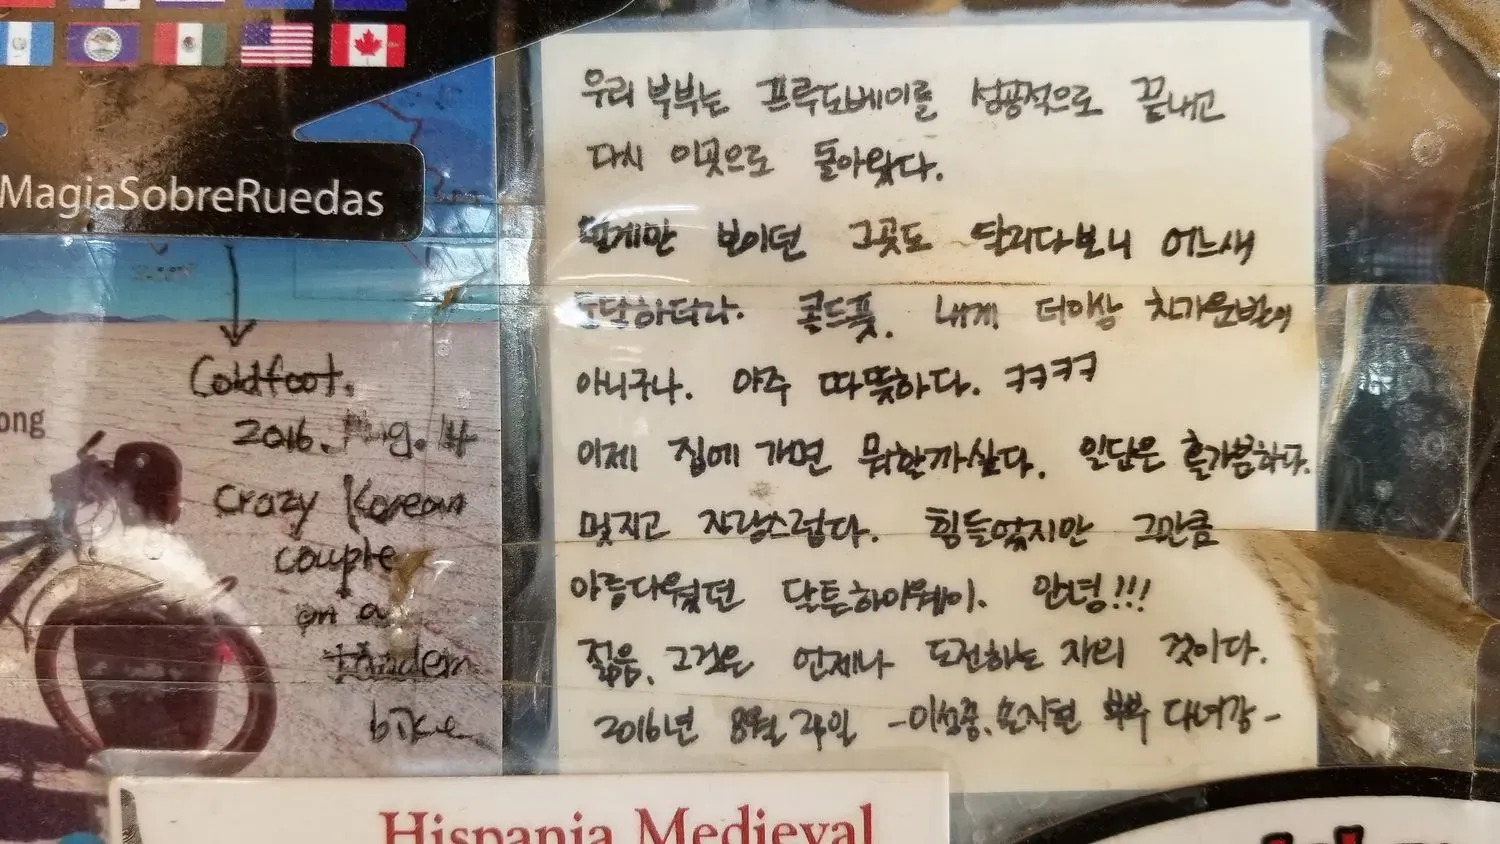 MagiaSobreRuedas
ong
Coldfoot.
2016. Aug. 14
crazy Korean
couple
on a
tandem
bike
우리 부부는 프루도베이를 성공적으로 끝내고
다시 이곳으로 돌아왔다.
멀게만 보이던 그곳도 달리다보니 어느새
하더라. 콜드풋. 내게 더이상 차가운발이
아니구나. 아주 따뜻하다. ㅋㅋㅋㅋ
이제 집에 가면 뭐한까싶다. 일단은 홀가분하다.
멋지고 자랑스럽다. 힘들었지만 그만큼
아름다웠던 달톤하이웨이. 안녕!!!
젊음. 그것은 언제나 도전하는 자의 것이다.
2016년 8월 24일 -이성종, 손지현 부부 다녀감-
Hispania Medieval